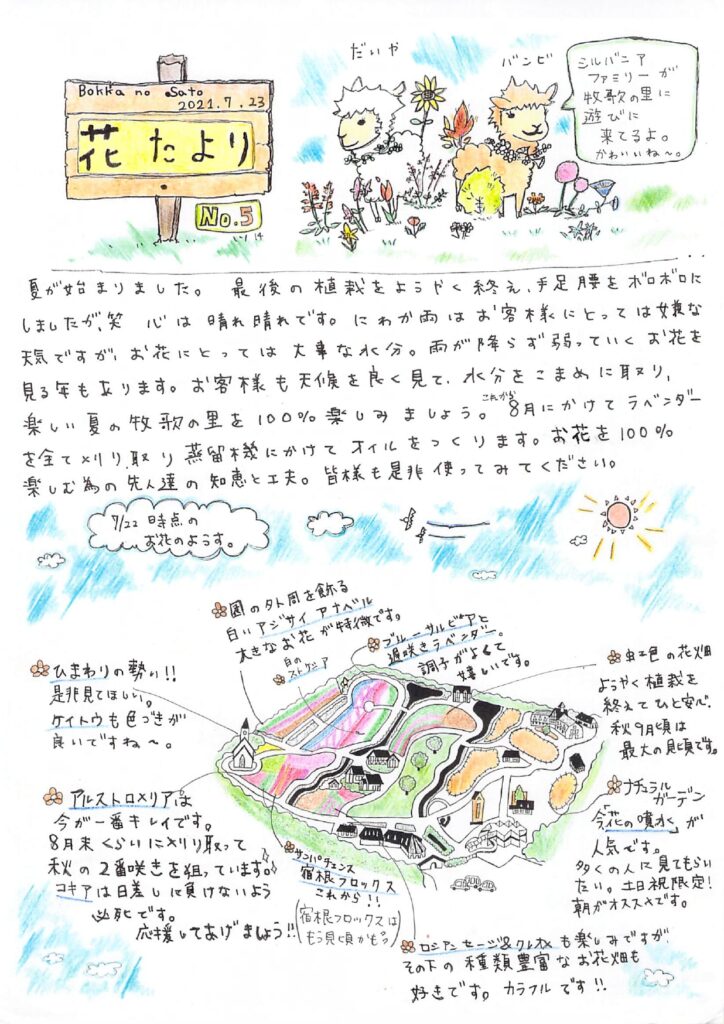 Bokka no Sato
2021.7.23
花たより
No.5
だいや
バンビ
シルバニア
ファミリーが
牧歌の里に
遊びに
来てるよ。
かわいいね〜。
夏が始まりました。 最後の植栽をようやく終え、手足腰をボロボロに
しましたが、笑 心は晴れ晴れです。にわか雨はお客様にとっては嫌な
天気ですが、お花にとっては大事な水分。雨が降らず弱っていくお花を
見る年もあります。お客様も天候を良く見て、水分をこまめに取り、
楽しい夏の牧歌の里を100%楽しみましょう。これから8月にかけてラベンダー
を全て刈り取り蒸留機にかけてオイルをつくります。お花を100%
楽しむ為の先人達の知恵と工夫。皆様も是非使ってみてください。
7/22 時点の
お花のようす。
園の外周を飾る
白いアジサイアナベル
大きなお花が特徴です。
白の
ストケシア
ブルーサルビアと
遅咲きラベンダー。
調子がよくて
嬉しいです。
ひまわりの勢い!!
是非見てほしい。
ケイトウも色づきが
良いですね〜。
虹色の花畑
ようやく植栽を
終えてひと安心。
秋9月頃は
最大の見頃です。
アルストロメリアは
今が一番キレイです。
8月末くらいに刈り取って
秋の2番咲きを狙っています。
コキアは日差しに負けないよう
必死です。
応援してあげましょう!!
サンパチェンス
宿根フロックス
これから!!
(宿根フロックスは
もう見頃かもっ)
ナチュラル
ガーデン
今「花の噴水」が
人気です。
多くの人に見てもらい
たい。土日祝限定!
朝がオススメです。
ロシアンセージ&クレオメも楽しみですが
その下の種類豊富なお花畑も
好きです。カラフルです!!